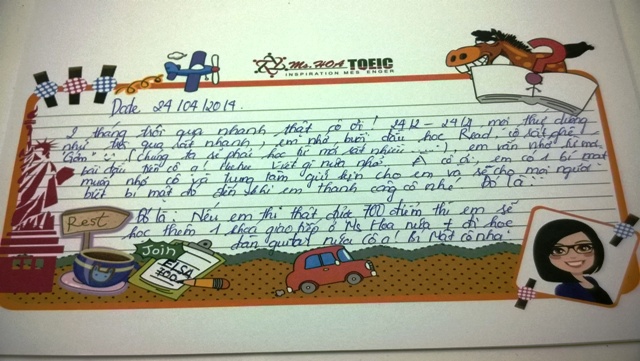 Ms. HOA TOEIC
INSPIRATION MES ENGER
Date 24/04/2014.
1 tháng trôi qua nhanh thật cô ơi! 24/2 - 24/4 mọi thứ dường
như trôi qua rất nhanh, em nhớ buổi đầu học Read, cô rất ghê
Gớm" (chúng ta sẽ phải học từ mới rất nhiều ....), em vẫn nhớ từ mới
bài đầu tiên cô ạ! Viết gì nữa nhỉ? À cô ơi, em có 1 bí mật
muốn nhờ cô và giữ kín cho em và sẽ cho mọi người
biết bí mật đó đến khi em thành công cô nhé. Đó là:
Đó là: Nếu em thi thật được 700 điểm thì em sẽ
học thêm 1 khoá giao tiếp ở Ms Hoa nữa + đi học
đàn guitar nữa cô ạ! Bí mật cô nha!
Rest
Join
700